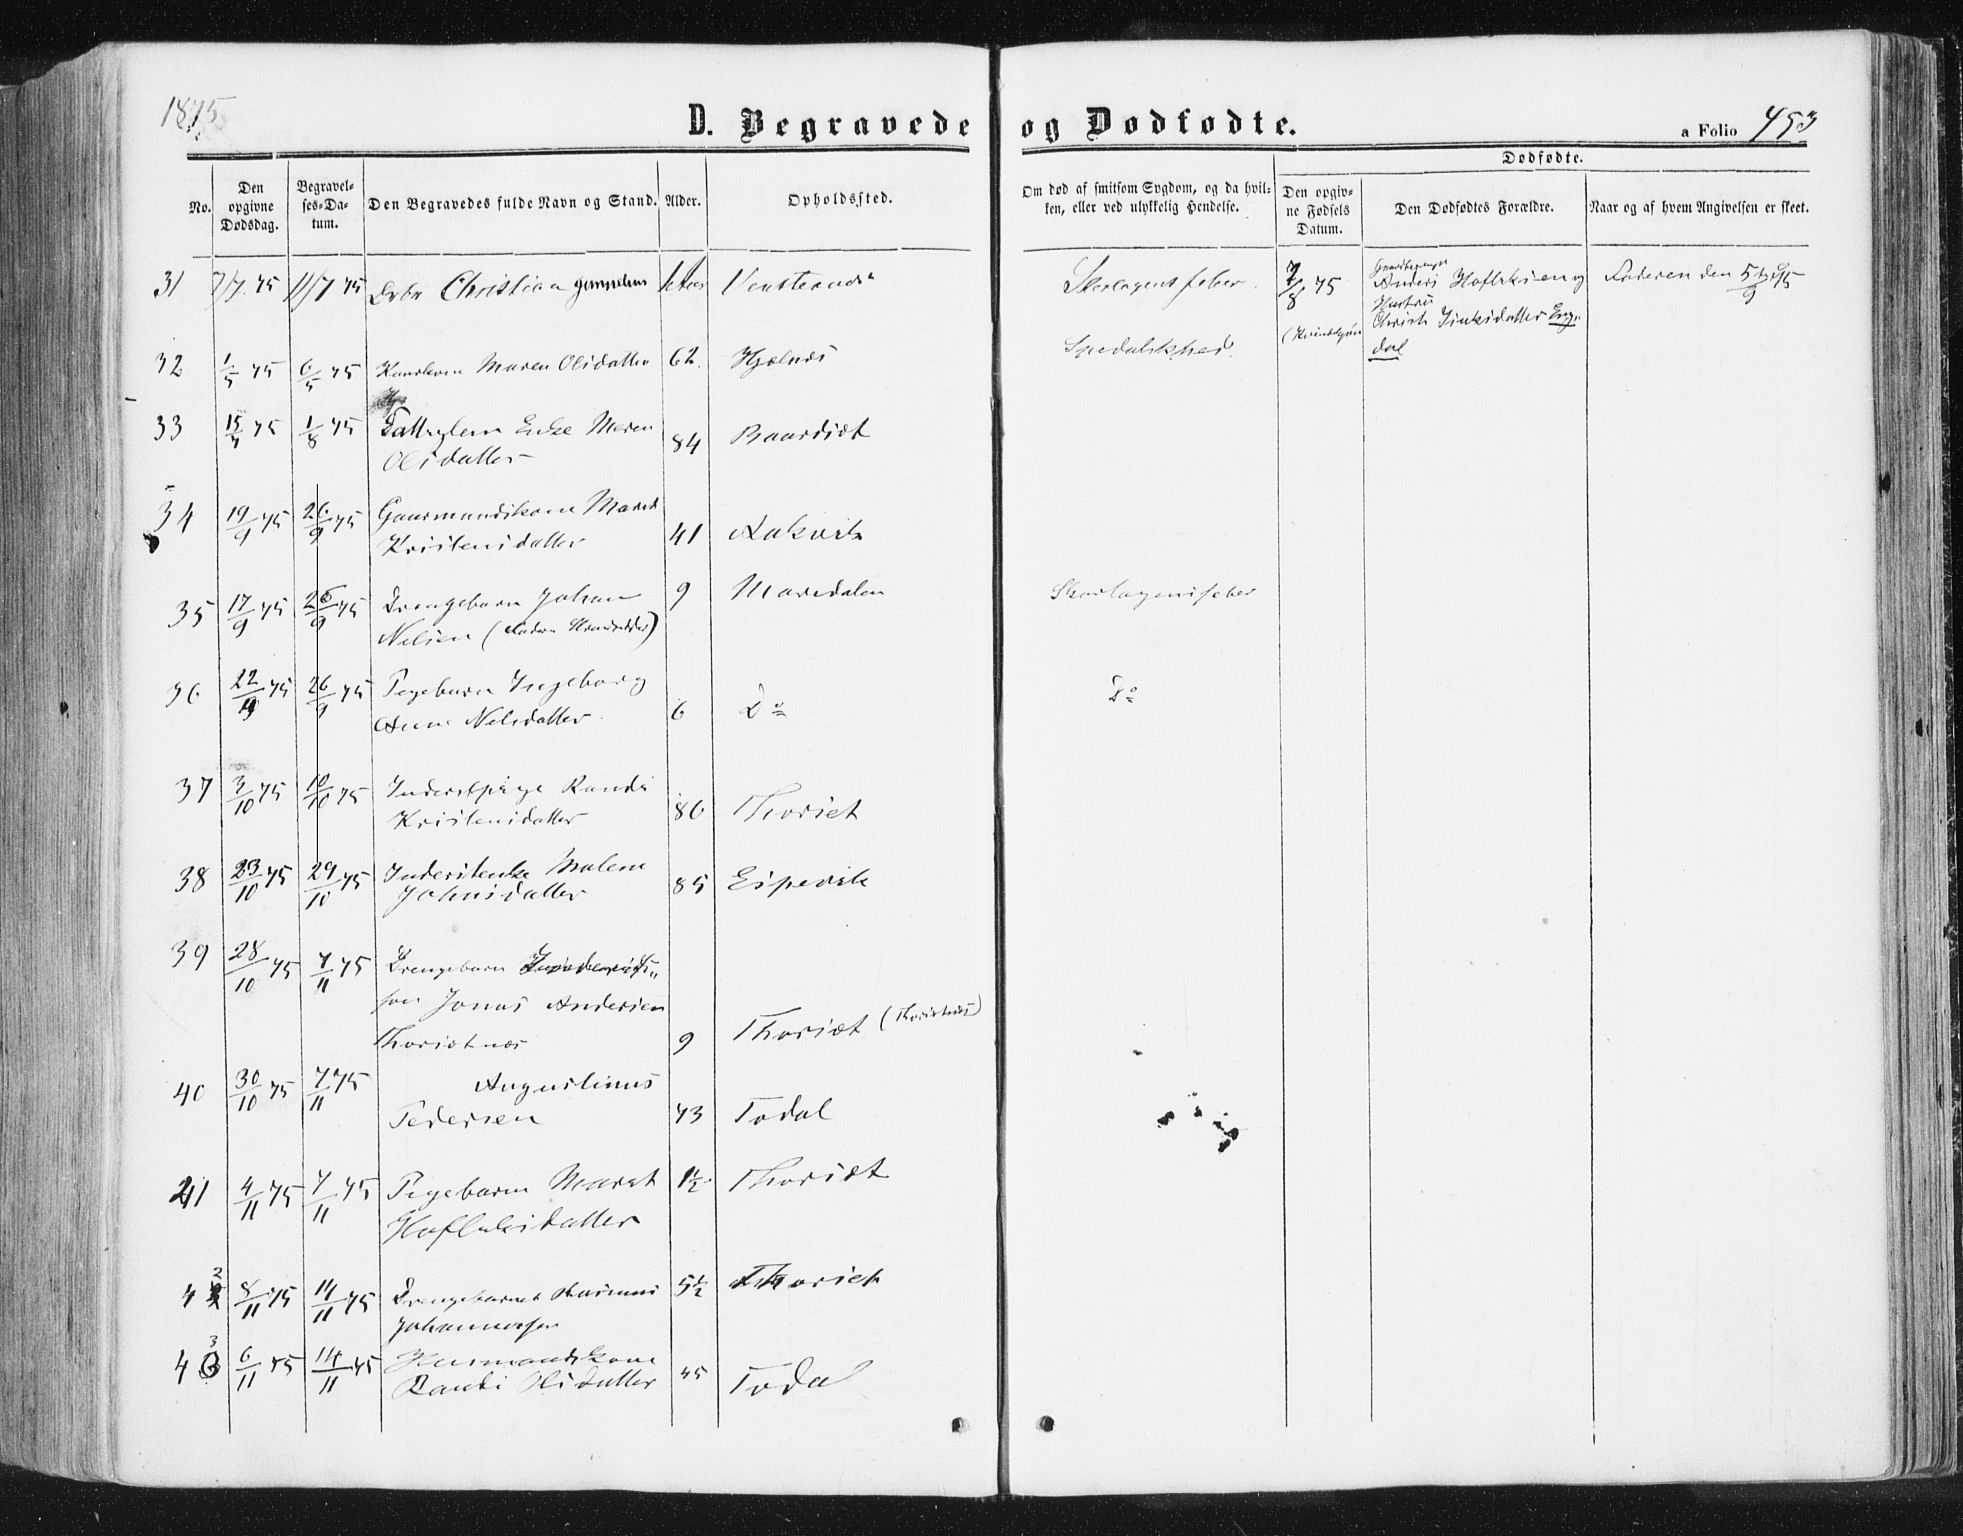 1875
D. Begravede og Dødfødte.
a Folio 453
Dødfødte.
No.
Den opgivne Dødsdag.
Begravelses-Datum.
Den Begravedes fulde Navn og Stand.
Alder.
Opholdssted.
Om død af smitsom Sygdom, og da hvilken, eller ved ulykkelig Hendelse.
Den opgivne Fødsels Datum.
Den Dødfødtes Forældre.
Naar og af hvem Angivelsen er skeet.
31 7/7 75 11/7 75 Drbn Christian Skarlagensfeber 7/8 75 Anders Hoflaksen og Faderen den 5/9 75
Hustru
32 1/5 75 6/5 75 Maren Olsdatter 62 Spedalskhed
33 15/7 75 1/8 75 Enke Maren
Olsdatter 84 Baardset
34 19/9 75 26/9 75 Gaarmandskone Marit
Kristensdatter 41 Aakvik
35 17/9 75 26/9 75 Drengebarn Johan
Nelsen 9 Maredalen Skarlagensfeber
36 22/9 75 26/9 75 Pigebarn Ingeborg
Anne Nelsdatter 6 Do Do
37 3/10 75 10/10 75 Inderstpige Randi
Kristensdatter 86 Thorset
38 23/10 75 29/10 75 Inderstenke Malene
Johnsdatter 85 Espevik
39 28/10 75 7/11 75 Drengebarn
søn Jonas Andersen
Thorsetnæs 9 Thorset (Thorsetnæs)
40 30/10 75 7/11 75 Augustinus
Pedersen 73 Todal
41 4/11 75 7/11 75 Pigebarn Marit 1½ Thorset
Hoflaksdatter
42 8/11 75 14/11 75 Drengebarnet Rasmus 5½ Thorset
Johannesen
43 6/11 75 14/11 75 Husmandskone
Randi Olsdatter 45 Todal